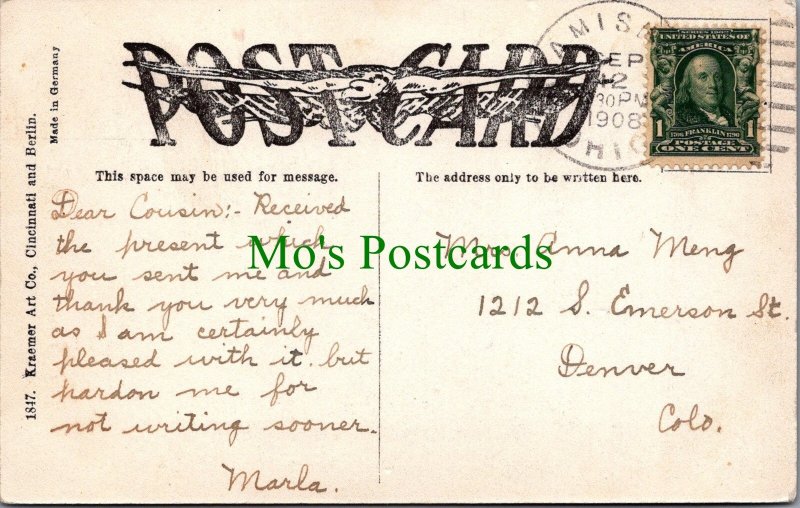 POST CARD
AMISA
SEP
12
30 PM
1908
OHIO
SERIES 1902
UNITED STATES OF
AMERICA
1 1706 FRANKLIN 1790 1
POSTAGE
ONE CENT
This space may be used for message.
The address only to be written here.
1847. Kraemer Art Co., Cincinnati and Berlin.
Made in Germany
Dear Cousin:- Received
the present which
you sent me and
thank you very much
as I am certainly
pleased with it but
pardon me for
not writing sooner.
Marla.
Mrs. Anna Meng
1212 S. Emerson St.
Denver
Colo.
Mo's Postcards